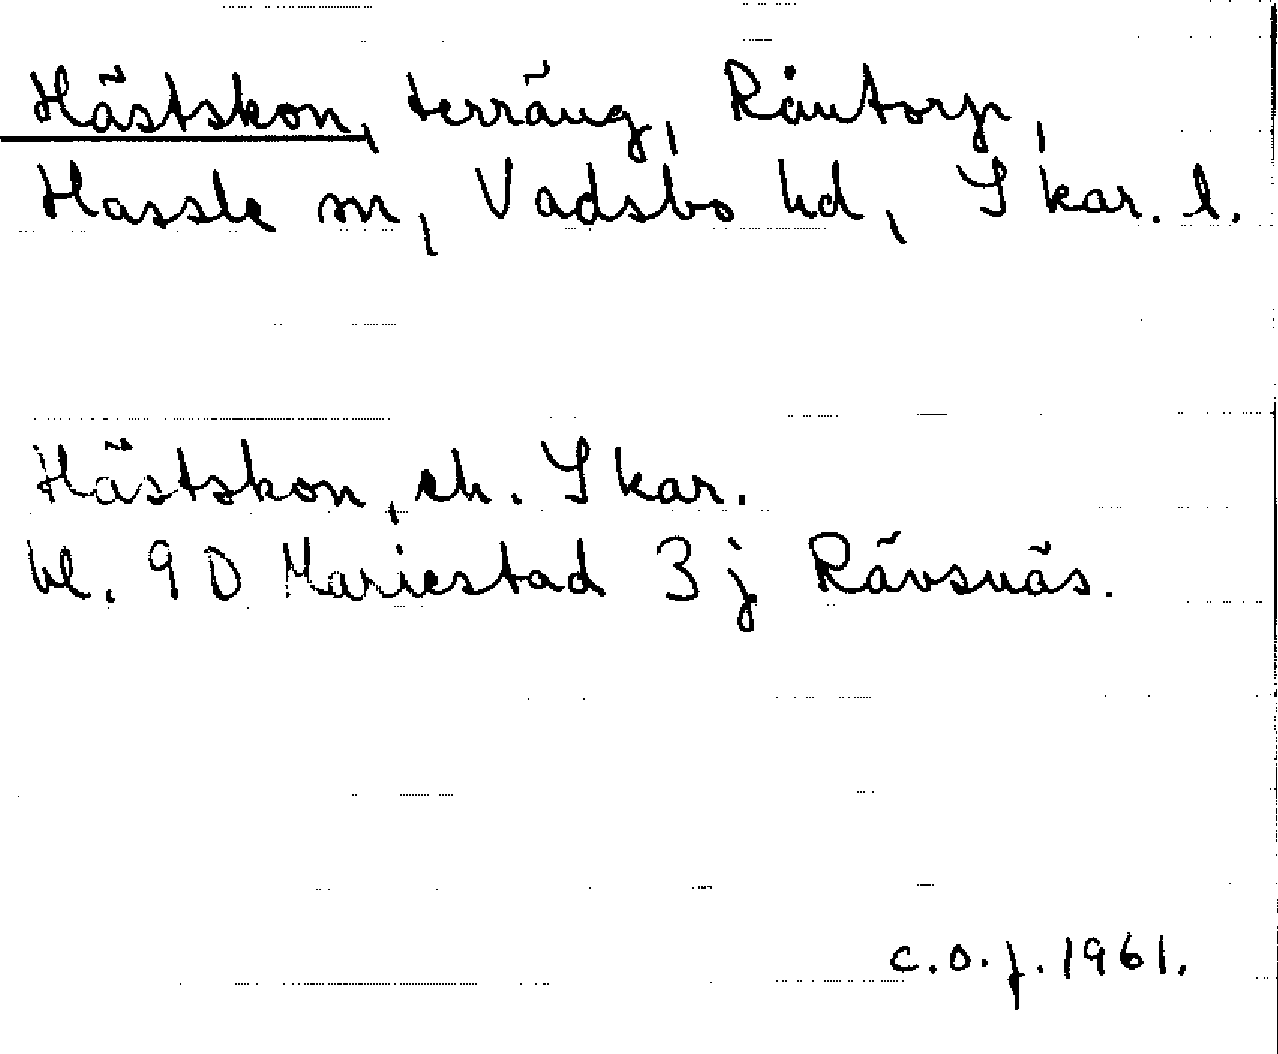 Hästskon, terräng, Råntorp,
Hassle sn, Vadsbo hd, Skar. l.
Hästskon, ek. Skar.
bl. 9 D Mariestad 3 j Rävsnäs.
C.O.f. 1961.